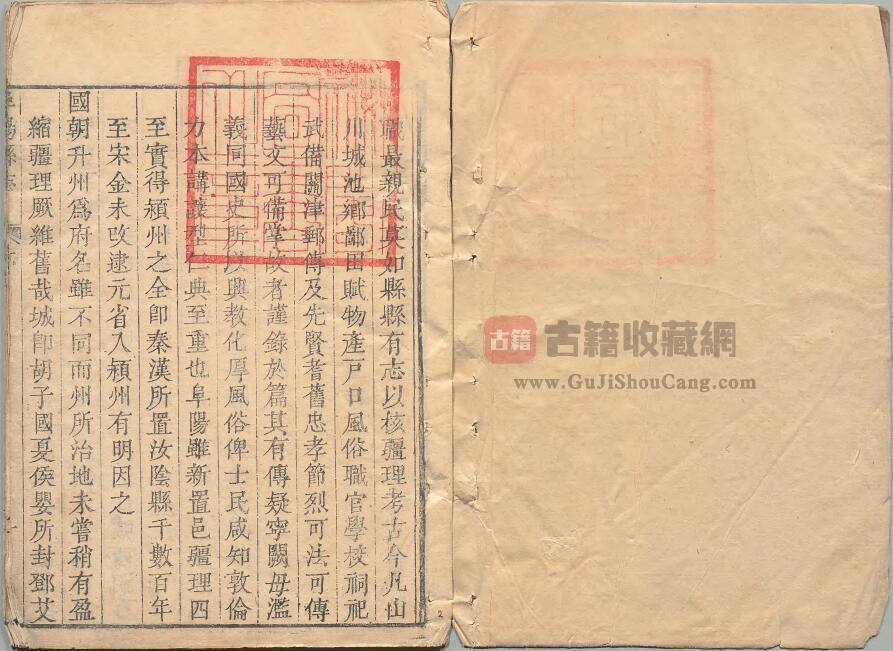 職最親民莫如縣縣有志以核疆理考古今凡山
川城池鄉鄙田賦物產戶口風俗職官學校祠祀
武備關津郵傳及先賢耆舊忠孝節烈可法可傳
藝文可備掌故者謹錄於篇其有傳疑寧闕毋濫
義同國史所以興教化厚風俗俾士民咸知敦倫
力本講讓型仁典至重也阜陽雖新置邑疆理四
至實得潁州之全即秦漢所置汝陰縣千數百年
至宋金未改逮元省入潁州有明因之
國朝升州爲府名雖不同而州所治地未嘗稍有盈
縮疆理厥維舊哉城即胡子國夏侯嬰所封鄧艾
陽縣
古籍
古籍收藏網
www.GuJiShouCang.com
2